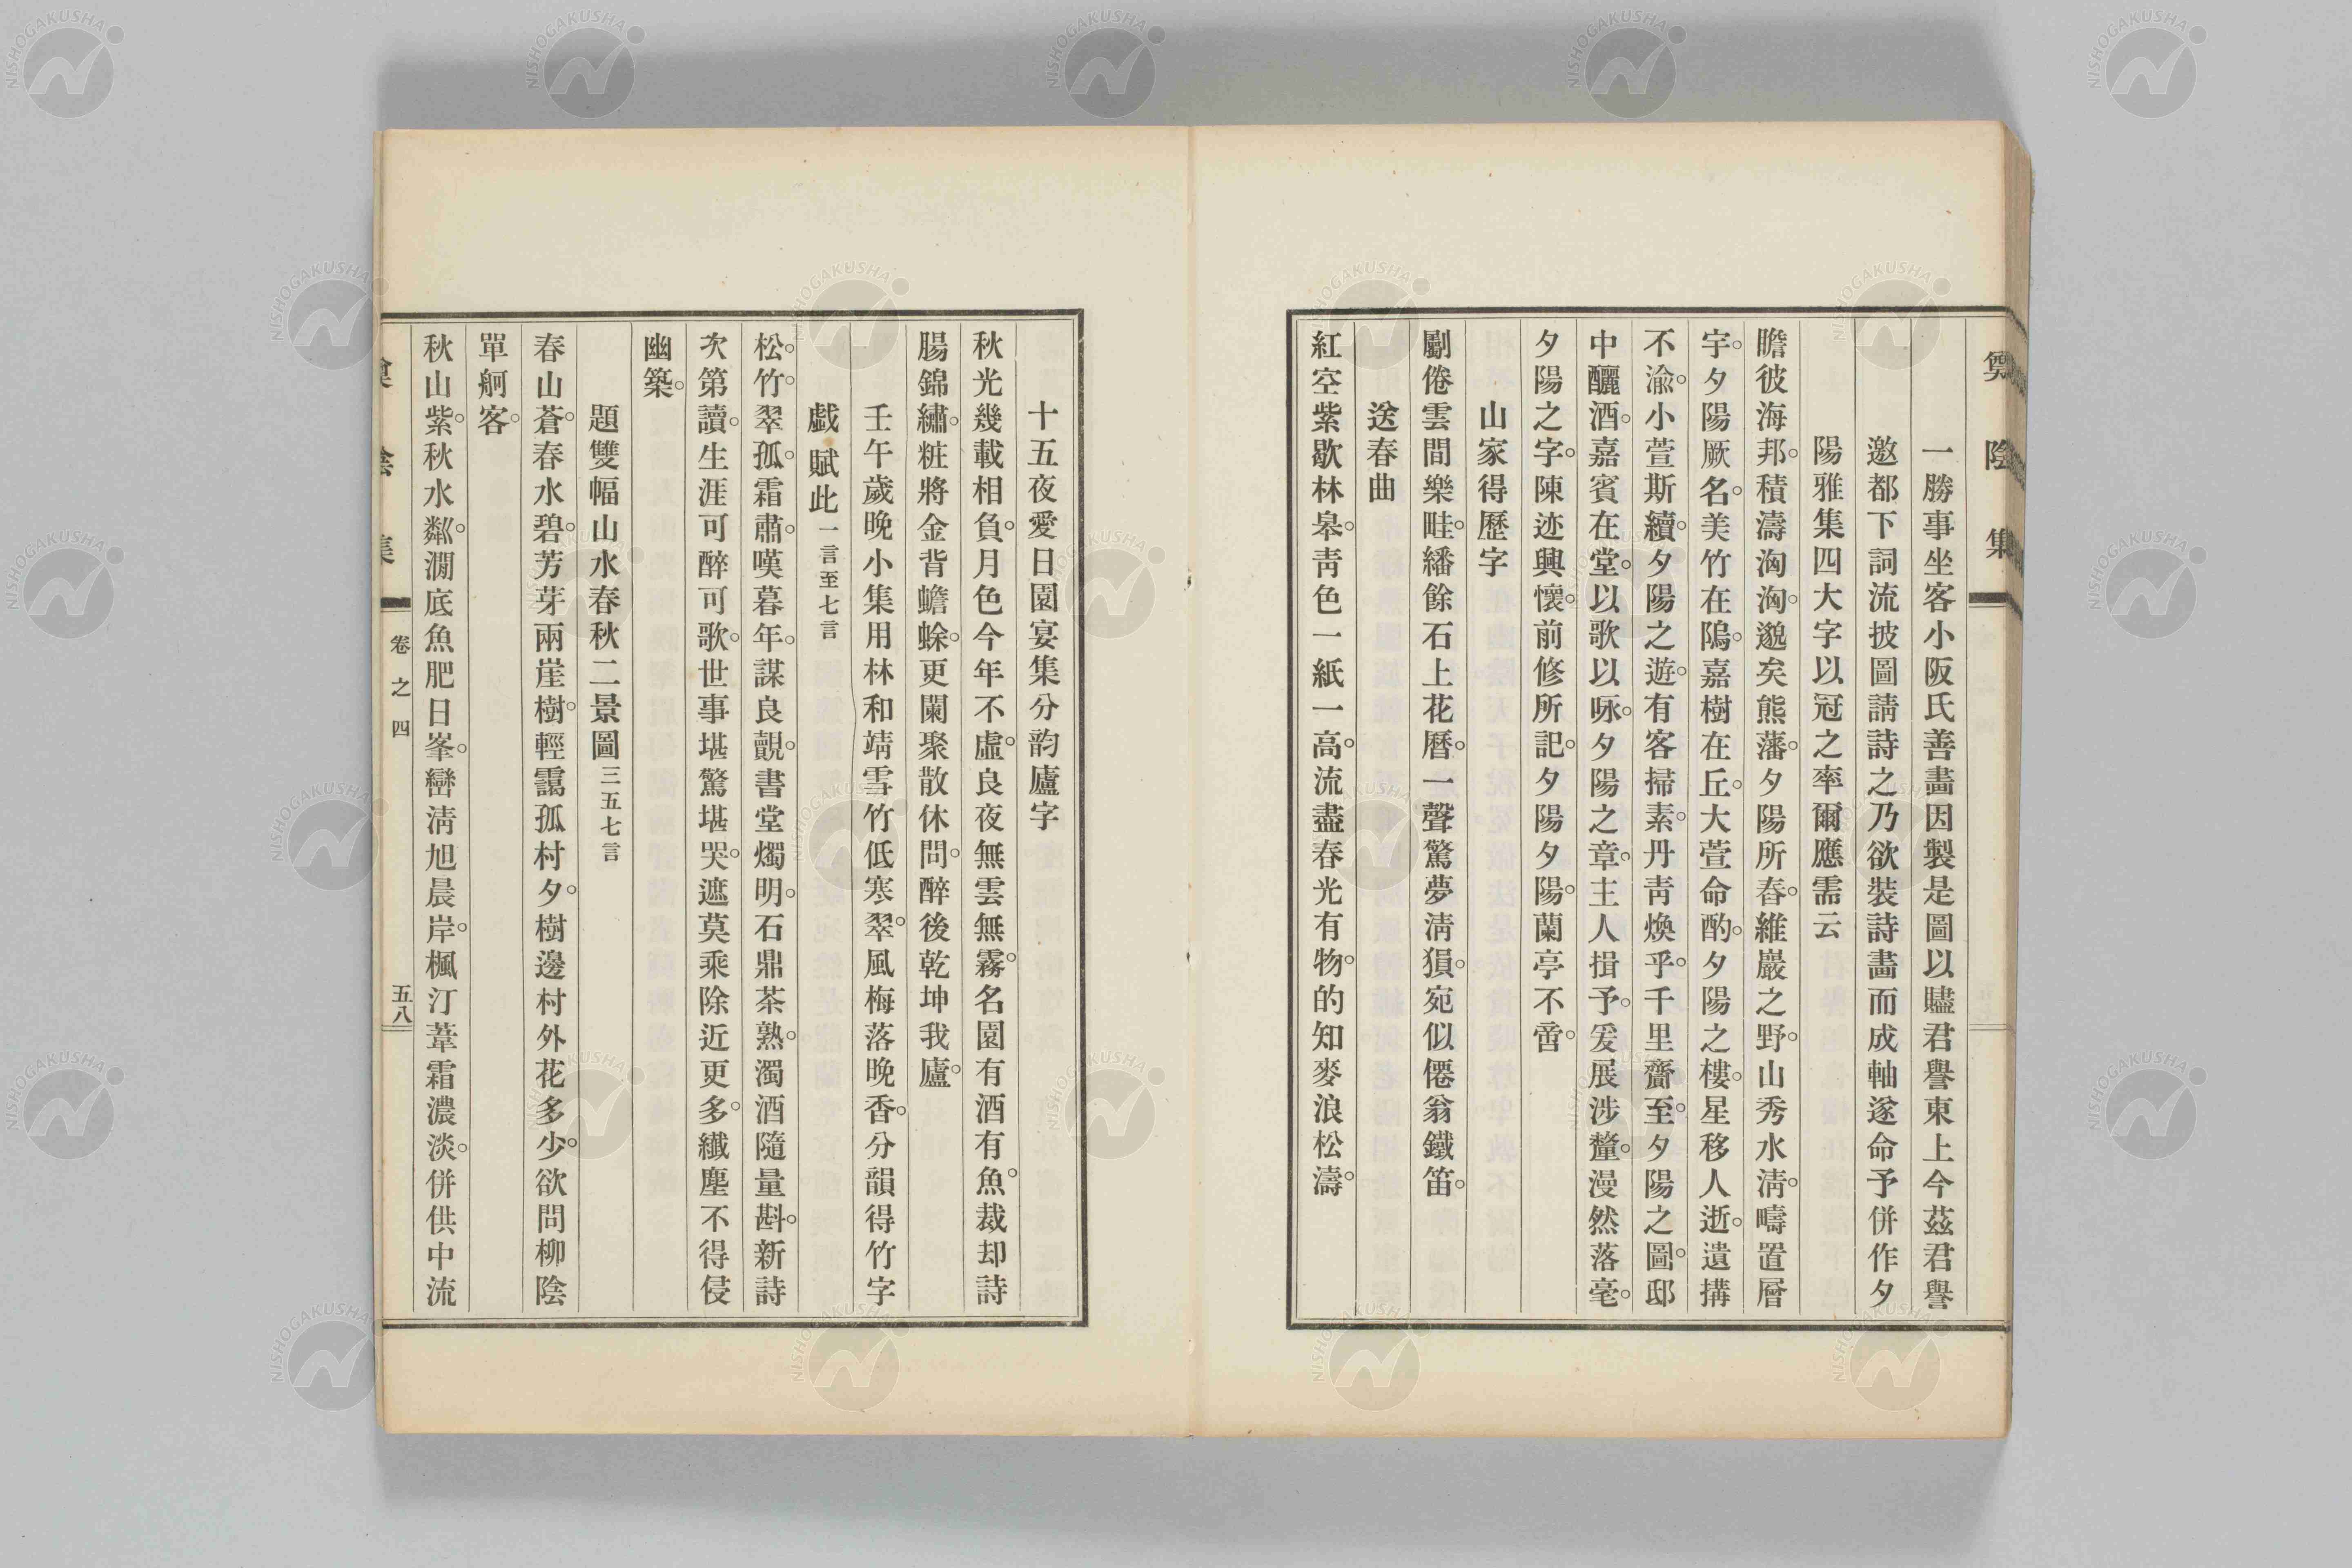 陰集
一勝事坐客小阪氏善畵因製是圖以贐君譽東上今茲君譽
邀都下詞流披圖請詩之乃欲裝詩畵而成軸遂命予併作夕
陽雅集四大字以冠之率爾應需云
瞻彼海邦。積濤洶洶。邈矣熊藩。夕陽所舂。維巖之野。山秀水淸。疇置層
宇。夕陽厥名。美竹在隝。嘉樹在丘。大萱命酌。夕陽之樓。星移人逝。遺搆
不渝。小萱斯續。夕陽之遊。有客掃素。丹靑煥乎。千里齎至。夕陽之圖。邸
中釃酒。嘉賓在堂。以歌以咏。夕陽之章。主人揖予。爰展涉釐。漫然落毫。
夕陽之字。陳迹興懷。前修所記。夕陽夕陽。蘭亭不啻。
山家得歷字
劚倦雲間樂畦。繙餘石上花曆。一聲驚夢淸猿。宛似僊翁鐵笛。
送春曲
紅空紫歇林皋。靑色一紙一高。流盡春光有物。的知麥浪松濤。
十五夜愛日園宴集分韵廬字
秋光幾載相負。月色今年不虛。良夜無雲無霧。名園有酒有魚。裁却詩
腸錦繡。粧將金背蟾蜍。更闌聚散休問。醉後乾坤我廬。
壬午歲晚小集用林和靖雪竹低寒翠。風梅落晚香。分韻得竹字
戯賦此一言至七言
松。竹。翠孤。霜肅。嘆暮年。謀良覿。書堂燭明。石鼎茶熟。濁酒隨量斟。新詩
次第讀。生涯可醉可歌。世事堪驚堪哭。遮莫乘除近更多。纖塵不得侵
幽築。
題雙幅山水春秋二景圖三五七言
春山蒼。春水碧。芳芽兩崖樹。輕靄孤村夕。樹邊村外花多少。欲問柳陰
單舸客。
秋山紫。秋水粼。澗底魚肥日。峯巒淸旭晨。岸楓汀葦霜濃淡。併供中流
卷之四
五八